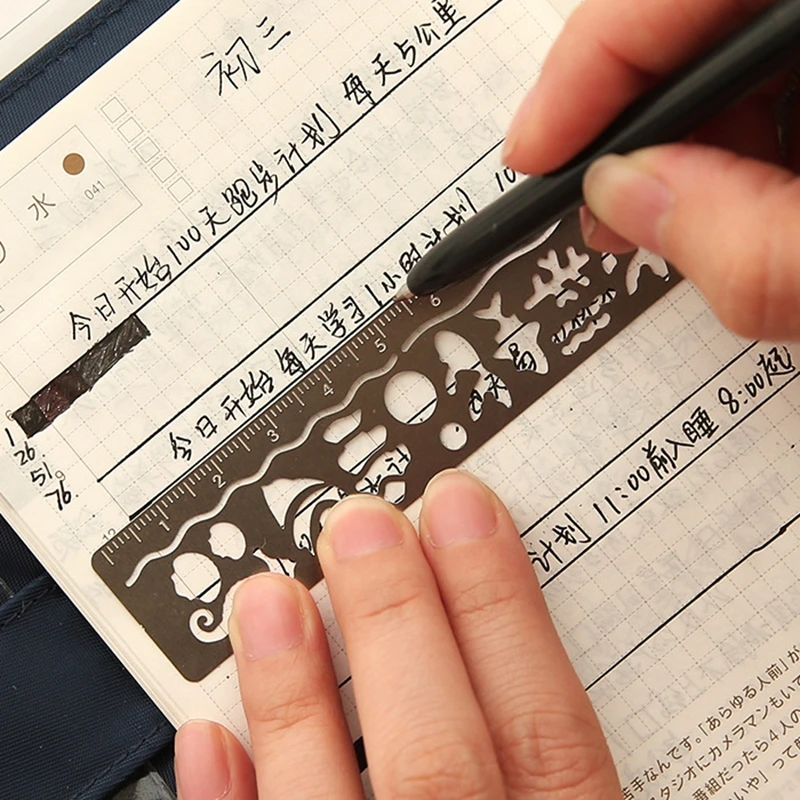 初三
水
041
今日开始100天跑步计划 每天5公里
今日开始每天学习1小时计划 10
1
26.
51.
76.
1 2 3 4 5 6
计划 11:00前入睡 8:00起
苦手なんです。「あらゆる人前」が
スタジオにカメラマンもいて
番組だったら4人の
いや」って